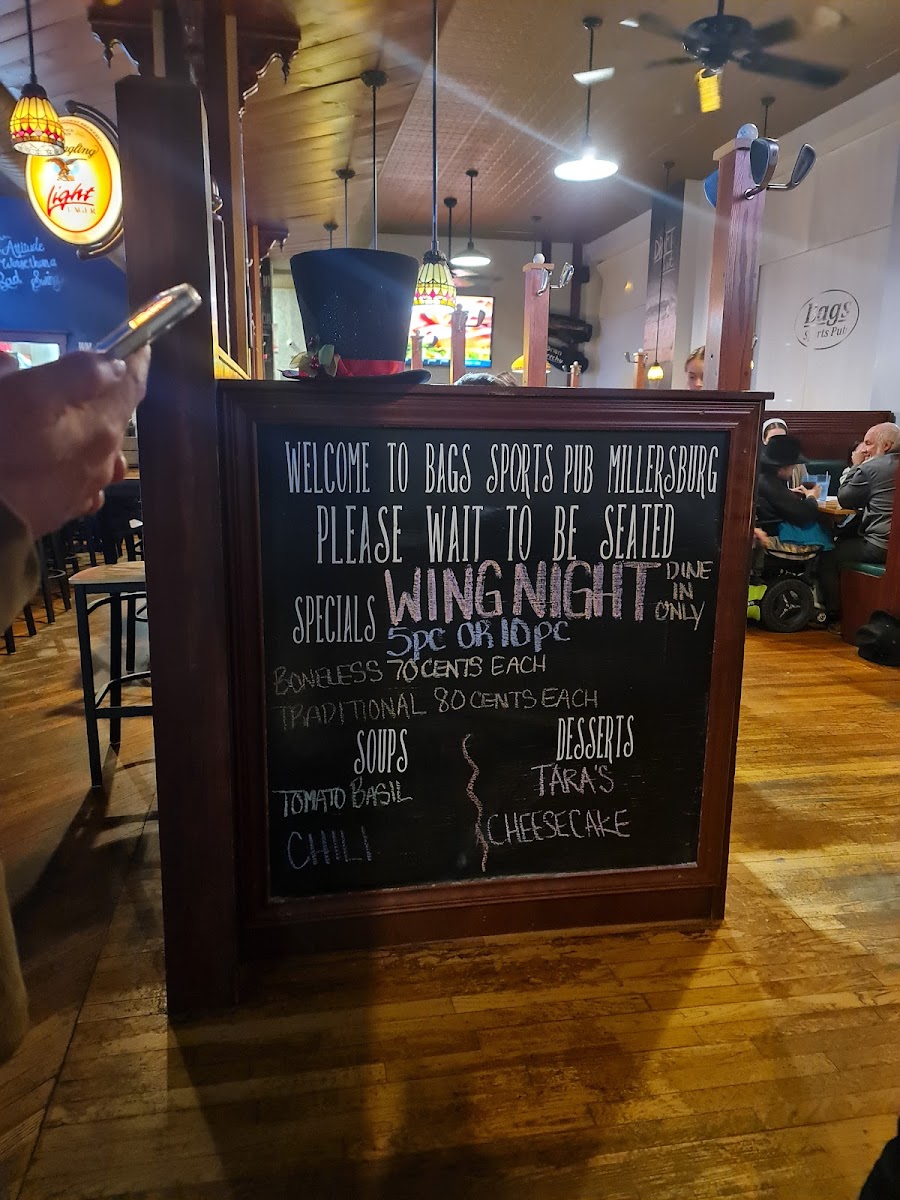 Light
LAGER
Attitude
Worse than a
Bad Swing
Bags
Sports Pub
WELCOME TO BAGS SPORTS PUB MILLERSBURG
PLEASE WAIT TO BE SEATED
SPECIALS WING NIGHT DINE IN ONLY
5PC OR 10PC
BONELESS 70 CENTS EACH
TRADITIONAL 80 CENTS EACH
SOUPS
TOMATO BASIL
CHILI
DESSERTS
TARA'S
CHEESECAKE